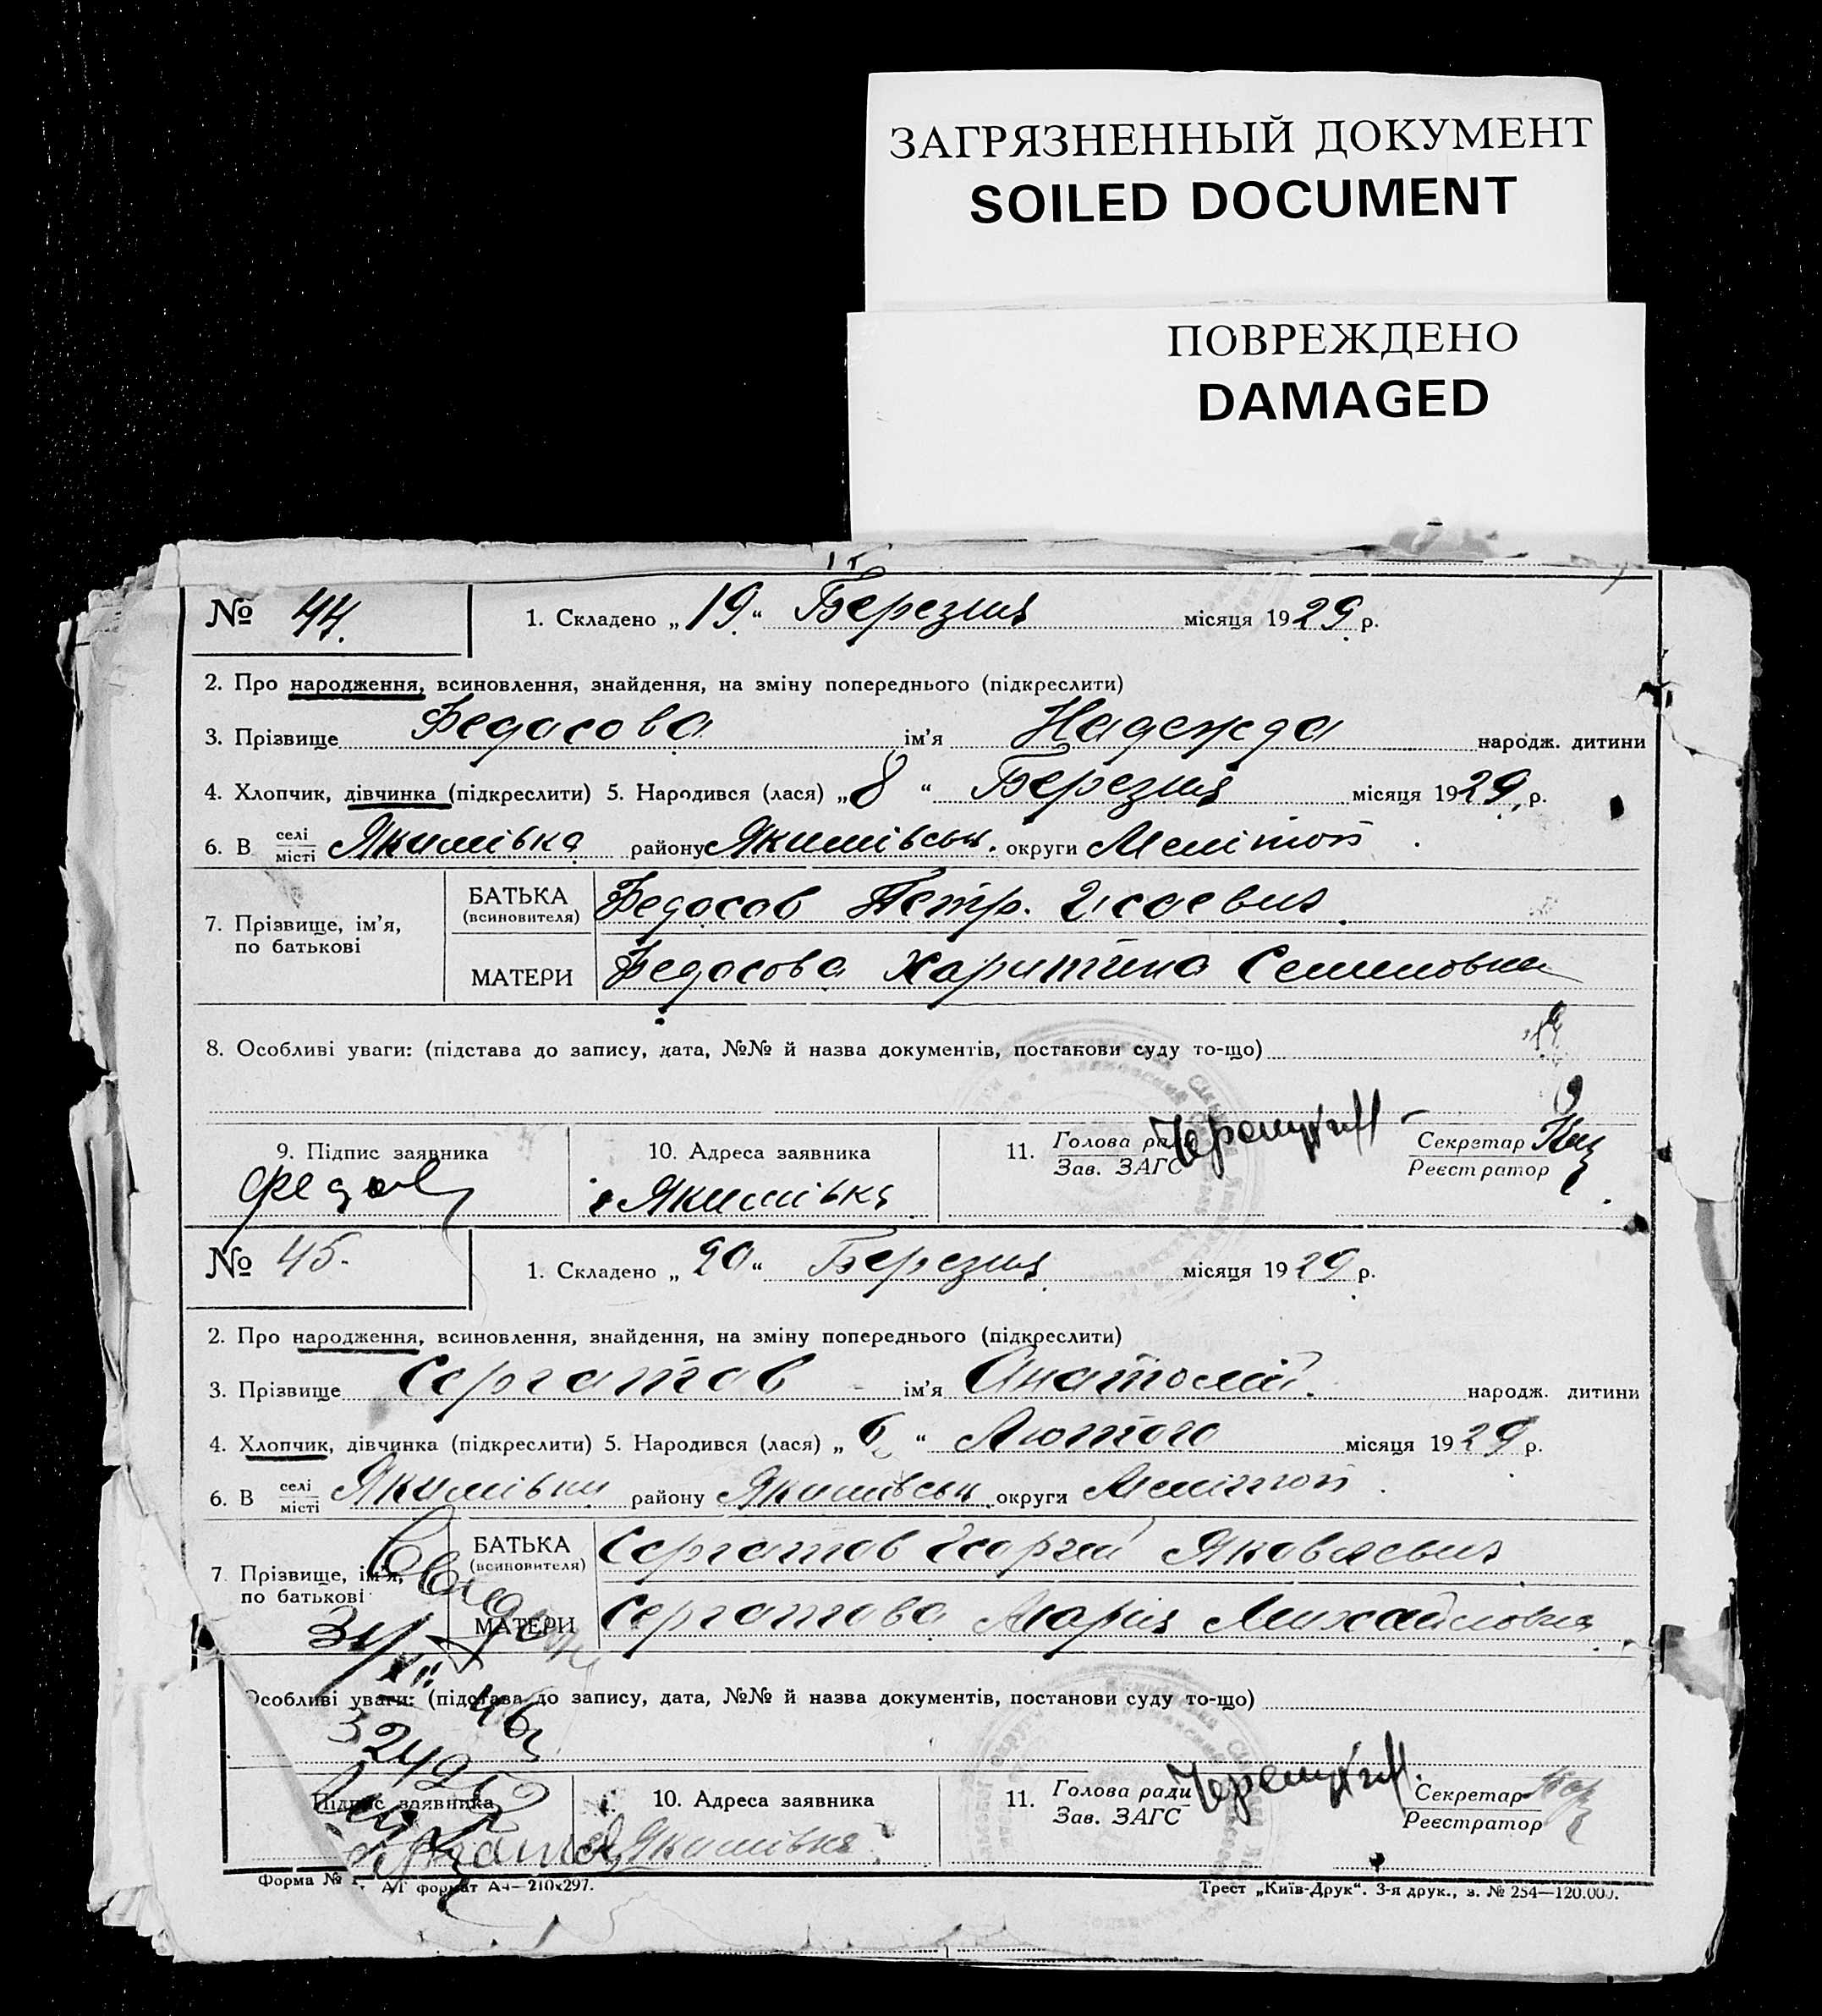 ЗАГРЯЗНЕННЫЙ ДОКУМЕНТ
SOILED DOCUMENT
ПОВРЕЖДЕНО
DAMAGED
№ 44. 1. Складено „19“ Березня місяця 1929 р.
2. Про народження, всиновлення, знайдення, на зміну попереднього (підкреслити)
3. Прізвище Федосова ім’я Надежда народж. дитини
4. Хлопчик, дівчинка (підкреслити) 5. Народився (лася) „8“ Березня місяця 1929 р.
6. В селі місті Якимівка району Якимівськ. округи Мелітоп
7. Прізвище, ім’я, по батькові БАТЬКА (всиновителя) Федосов Петр. Исаевич
МАТЕРИ Федосова Харитина Семеновна
8. Особливі уваги: (підстава до запису, дата, №№ й назва документів, постанови суду то-що)
9. Підпис заявника 10. Адреса заявника 11. Голова ради Зав. ЗАГС Секретар Реєстратор
Федос Якимівка
№ 45. 1. Складено „20“ Березня місяця 1929 р.
2. Про народження, всиновлення, знайдення, на зміну попереднього (підкреслити)
3. Прізвище Сергатов ім’я Анатолій народж. дитини
4. Хлопчик, дівчинка (підкреслити) 5. Народився (лася) „6“ Лютого місяця 1929 р.
6. В селі місті Якимівки району Якимівськ округи Мелітоп
7. Прізвище, ім’я, по батькові БАТЬКА (всиновителя) Сергатов Георгій Яковлевич
МАТЕРИ Сергатова Марія Михайловна
31/XII 46
Особливі уваги: (підстава до запису, дата, №№ й назва документів, постанови суду то-що)
Підпис заявника 10. Адреса заявника 11. Голова ради Зав. ЗАГС Секретар Реєстратор
Якимівка
Форма № 1. АГ формат А4—210x297. Трест „Київ-Друк“. 3-я друк., з. № 254—120.000.